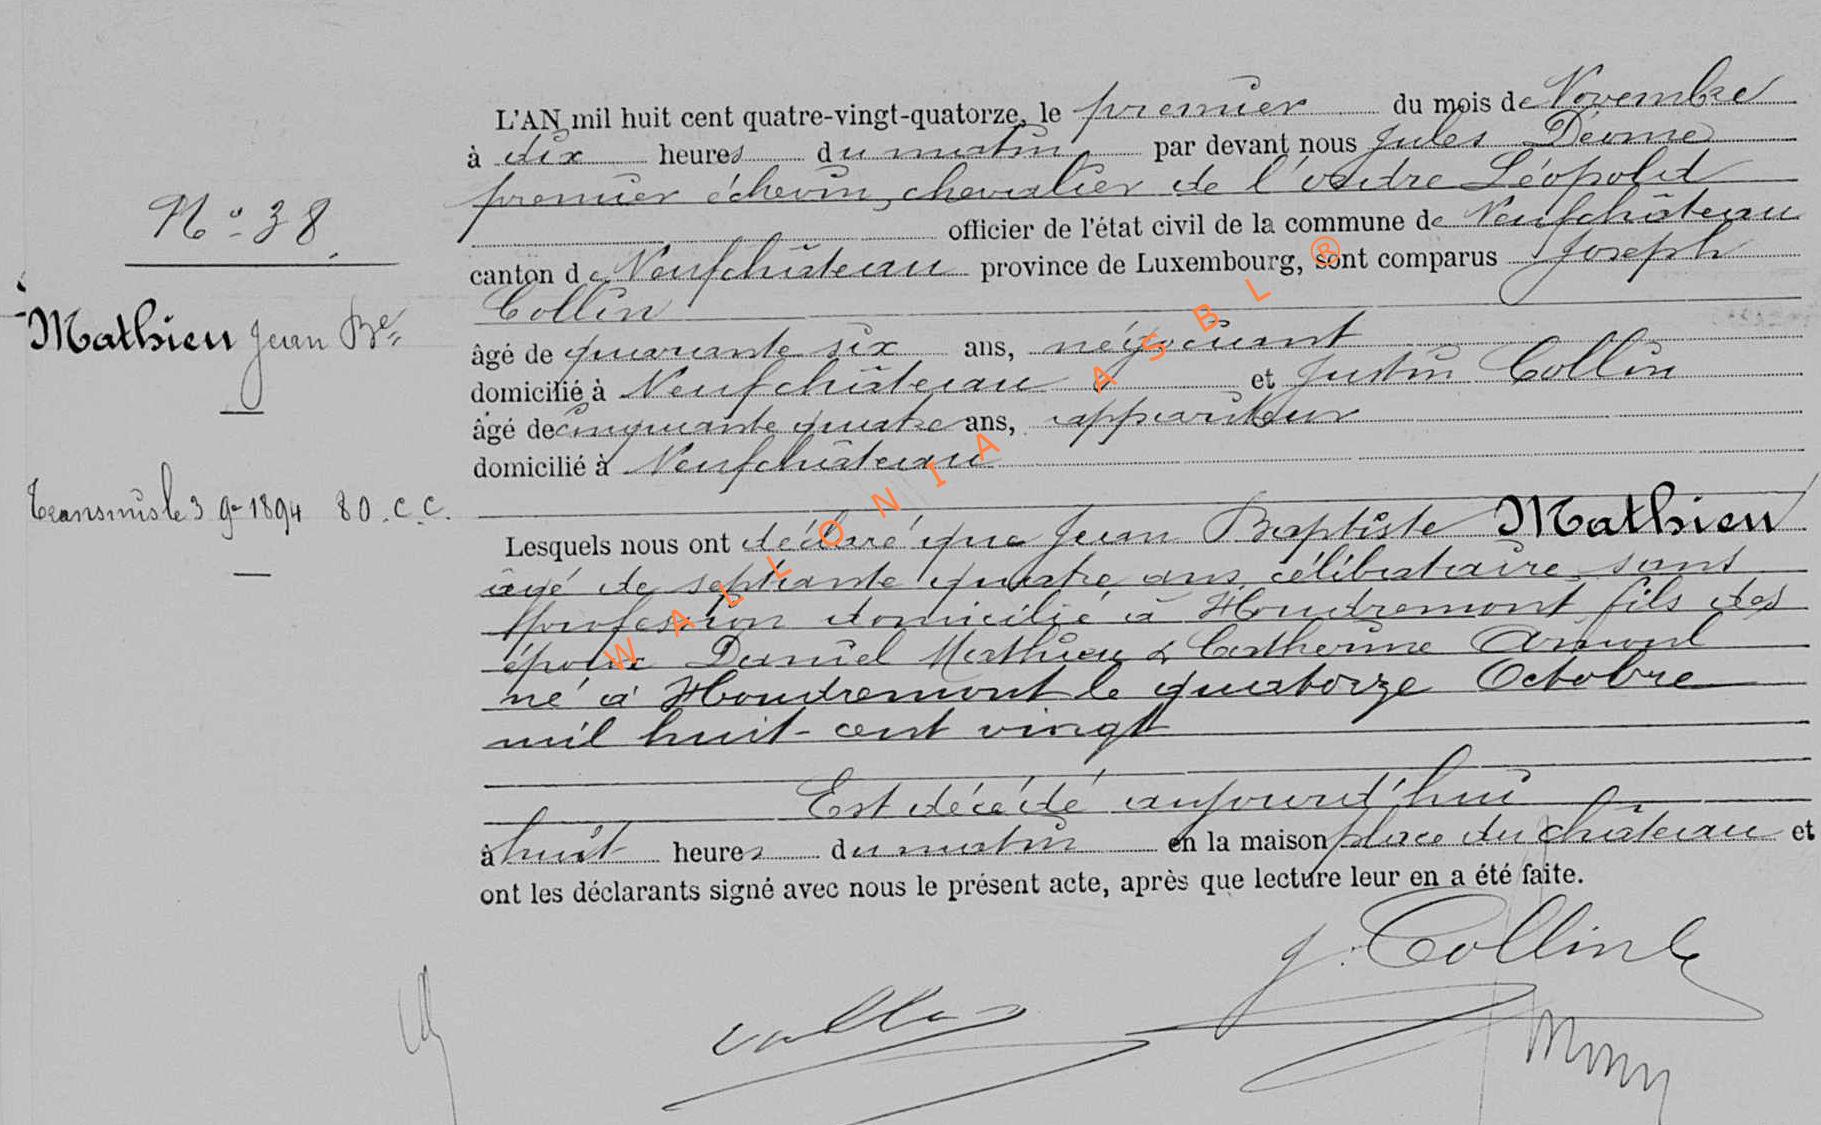 L'AN mil huit cent quatre-vingt-quatorze, le premier du mois de Novembre
à dix heures du matin par devant nous Jules Déome
premier échevin, chevalier de l'ordre Léopold
officier de l'état civil de la commune de Neufchâteau
canton de Neufchâteau province de Luxembourg, sont comparus Joseph
Collin
âgé de quarante six ans, négociant
domicilié à Neufchâteau et Justin Collin
âgé de cinquante quatre ans, appariteur
domicilié à Neufchâteau
Lesquels nous ont déclaré que Jean Baptiste Mathieu
âgé de septante quatre ans, célibataire, sans
profession domicilié à Houdremont fils des
époux Daniel Mathieu & Catherine Arnoul
né à Houdremont le quatorze Octobre
mil huit-cent vingt
Est décédé aujourd'hui
à huit heures du matin en la maison place du château et
ont les déclarants signé avec nous le présent acte, après que lecture leur en a été faite.
J. Collin
N° 38
Mathieu Jean Bte
Transmis le 3 9re 1894 80. C. C.
WALLONIA ASBL ®